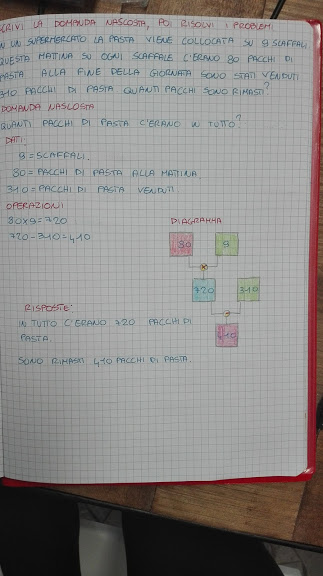 SCRIVI LA DOMANDA NASCOSTA, POI RISOLVI I PROBLEMI
IN UN SUPERMERCATO LA PASTA VIENE COLLOCATA SU 9 SCAFFALI
QUESTA MATTINA SU OGNI SCAFFALE C'ERANO 80 PACCHI DI
PASTA ALLA FINE DELLA GIORNATA SONO STATI VENDUTI
310 PACCHI DI PASTA QUANTI PACCHI SONO RIMASTI?
DOMANDA NASCOSTA
QUANTI PACCHI DI PASTA C'ERANO IN TUTTO?
DATI:
9 = SCAFFALI.
80 = PACCHI DI PASTA ALLA MATTINA
310 = PACCHI DI PASTA VENDUTI.
OPERAZIONI
80x9=720
720-310=410
DIAGRAMMA
80 9
x
720 310
-
410
RISPOSTE:
IN TUTTO C'ERANO 720 PACCHI DI
PASTA.
SONO RIMASTI 410 PACCHI DI PASTA.